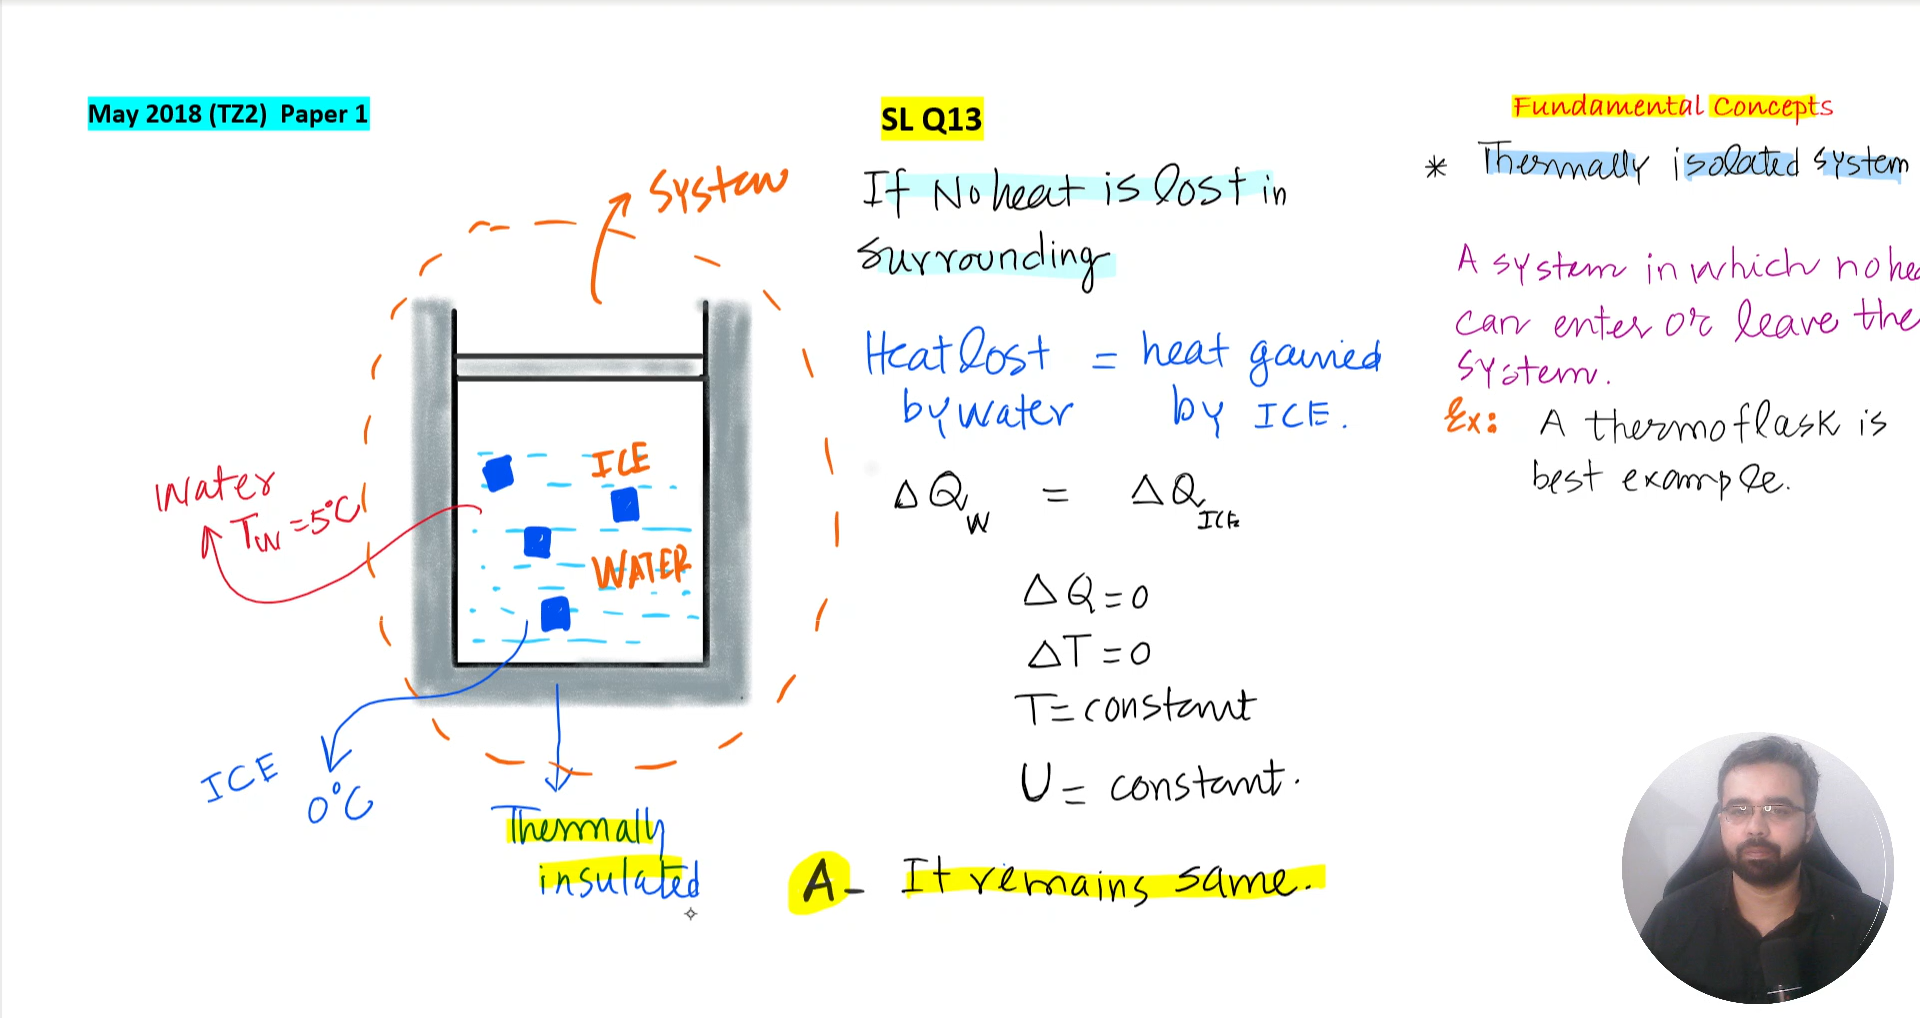 May 2018 (TZ2) Paper 1
System
Water
Tw = 5°C
ICE
WATER
ICE
0°C
Thermally
insulated
SL Q13
If No heat is lost in
surrounding
Heat lost = heat gained
by water by ICE.
ΔQw = ΔQICE
ΔQ = 0
ΔT = 0
T = constant
U = constant.
A - It remains same.
Fundamental Concepts
* Thermally isolated system
A system in which no hea
can enter or leave the
system.
Ex: A thermoflask is
best example.